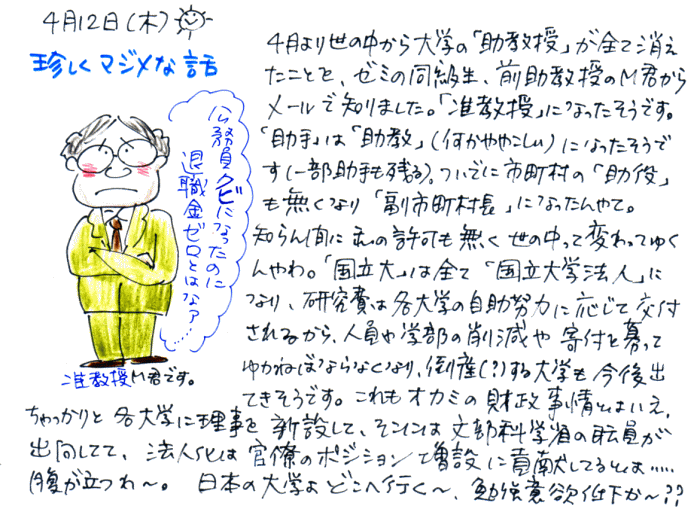 4月12日(木)
珍しくマジメな話
公務員クビになったのに
退職金ゼロとはなァ?
……
准教授M君です。
4月より世の中から大学の「助教授」が全て消え
たことを、ゼミの同級生、前助教授のM君から
メールで知りました。「准教授」になったそうです。
「助手」は「助教」(何かややこしい)になったそうで
す(一部助手も残る)。ついでに市町村の「助役」
も無くなり「副市町村長」になったんやて。
知らん间に私の許可も無く世の中って変わってゆく
んやわ。「国立大」は全て「国立大学法人」に
なり、研究費は各大学の自助努力に応じて交付
されるから、人員や学部の削減や寄付を募って
ゆかねばならなくなり、倒産(?)する大学も今後出
てきそうです。これもオカミの財政事情とはいえ、
ちゃっかりと各大学に理事を新設して、そこには文部科学省の職員が
出向してて、法人化は官僚のポジション増設に貢献してるとは……
腹が立つわ〜。日本の大学よどこへ行く〜、勉強意欲低下か〜??